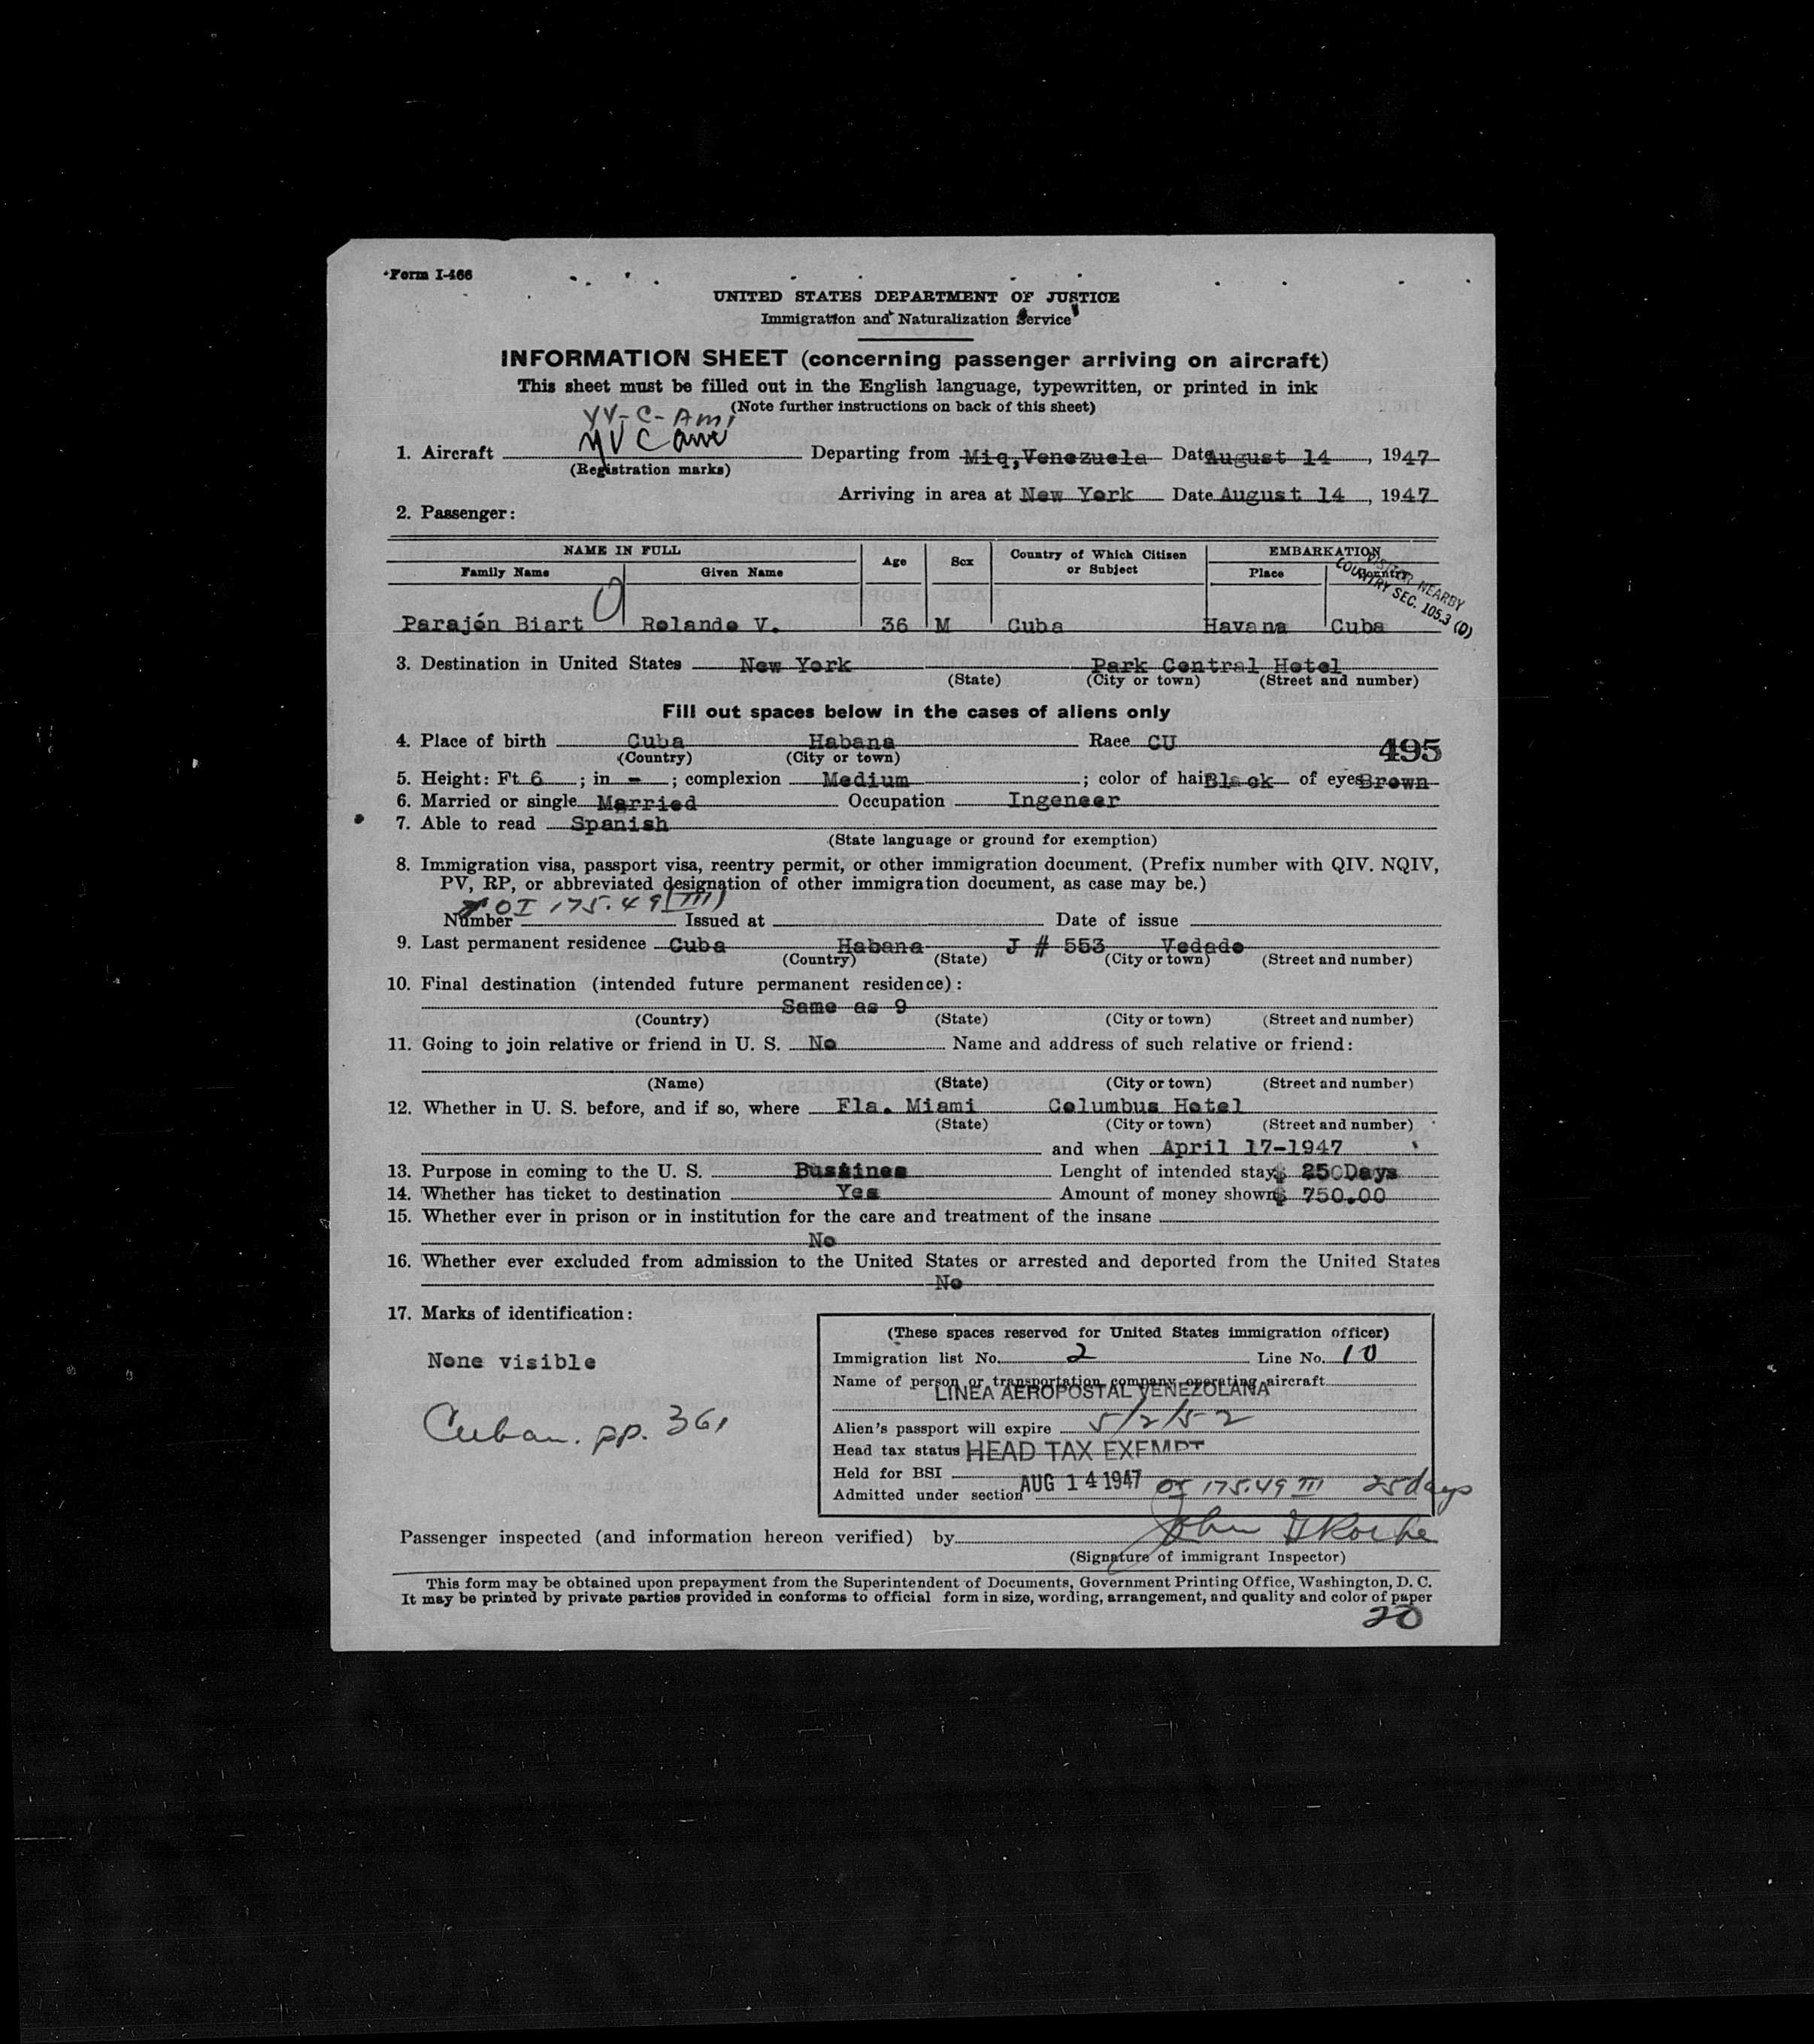 Form I-466
UNITED STATES DEPARTMENT OF JUSTICE
Immigration and Naturalization Service
INFORMATION SHEET (concerning passenger arriving on aircraft)
This sheet must be filled out in the English language, typewritten, or printed in ink
(Note further instructions on back of this sheet)
YV-C-AM
1. Aircraft YVC Departing from Miq, Venezuela Date August 14, 1947
(Registration marks)
Arriving in area at New York Date August 14, 1947
2. Passenger:
NAME IN FULL Age Sex Country of Which Citizen or Subject EMBARKATION
Family Name Given Name Place Country
VISITOR NEARBY
COUNTRY SEC. 105.3 (D)
Parajón Biart Rolando V. 36 M Cuba Havana Cuba
3. Destination in United States New York Park Central Hotel
(State) (City or town) (Street and number)
Fill out spaces below in the cases of aliens only
4. Place of birth Cuba Habana Race CU 495
(Country) (City or town)
5. Height: Ft 6 ; in - ; complexion Medium ; color of hair Black of eyes Brown
6. Married or single Married Occupation Ingeneer
7. Able to read Spanish
(State language or ground for exemption)
8. Immigration visa, passport visa, reentry permit, or other immigration document. (Prefix number with QIV. NQIV,
PV, RP, or abbreviated designation of other immigration document, as case may be.)
OI 175.49 (III)
Number Issued at Date of issue
9. Last permanent residence Cuba Habana J # 553 Vedado
(Country) (State) (City or town) (Street and number)
10. Final destination (intended future permanent residence):
Same as 9
(Country) (State) (City or town) (Street and number)
11. Going to join relative or friend in U. S. No Name and address of such relative or friend:
(Name) (State) (City or town) (Street and number)
12. Whether in U. S. before, and if so, where Fla. Miami Columbus Hotel
(State) (City or town) (Street and number)
and when April 17-1947
13. Purpose in coming to the U. S. Bussines Lenght of intended stay $ 25 Days
14. Whether has ticket to destination Yes Amount of money shown $ 750.00
15. Whether ever in prison or in institution for the care and treatment of the insane
No
16. Whether ever excluded from admission to the United States or arrested and deported from the United States
No
17. Marks of identification:
None visible
Cuban. pp. 361
(These spaces reserved for United States immigration officer)
Immigration list No. 2 Line No. 10
Name of person or transportation company operating aircraft
LINEA AEROPOSTAL VENEZOLANA
Alien's passport will expire 5/2/52
Head tax status HEAD TAX EXEMPT
Held for BSI
Admitted under section AUG 14 1947 OI 175.49 III 25 days
Passenger inspected (and information hereon verified) by John
(Signature of immigrant Inspector)
This form may be obtained upon prepayment from the Superintendent of Documents, Government Printing Office, Washington, D. C.
It may be printed by private parties provided in conforms to official form in size, wording, arrangement, and quality and color of paper
20